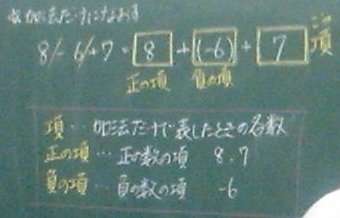 加法だけになおす
8-6+7=8+(-6)+7 項
正の項 負の項
項…加法だけで表したときの各数
正の項…正の数の項 8,7
負の項…負の数の項 -6